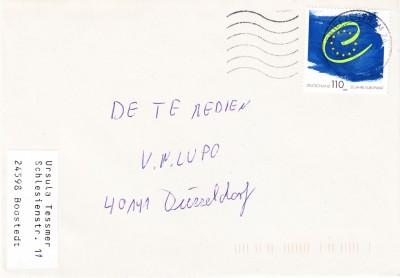 DEUTSCHLAND 110 50 JAHRE EUROPARAT
DE TE MEDIEN
V.N.LUPO
40141 Düsseldorf
Ursula Tessmer
Schlesienstr. 11
24598 Boostedt